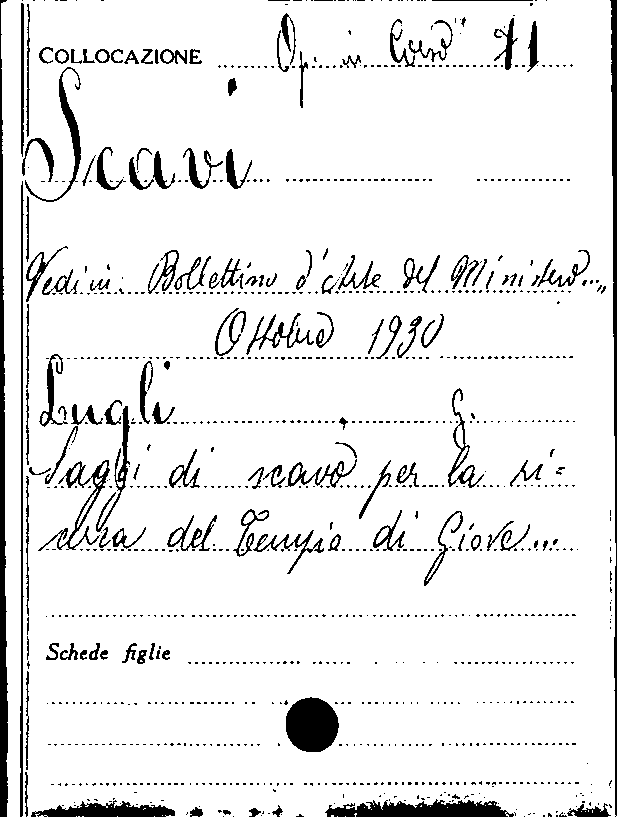 COLLOCAZIONE Op. in Corso" 71
Scavi
Vedi in: Bollettino d'Arte del Ministero...,,
Ottobre 1930
Lugli G.
Saggi di scavo per la ri=
cerca del Tempio di Giove...
Schede figlie